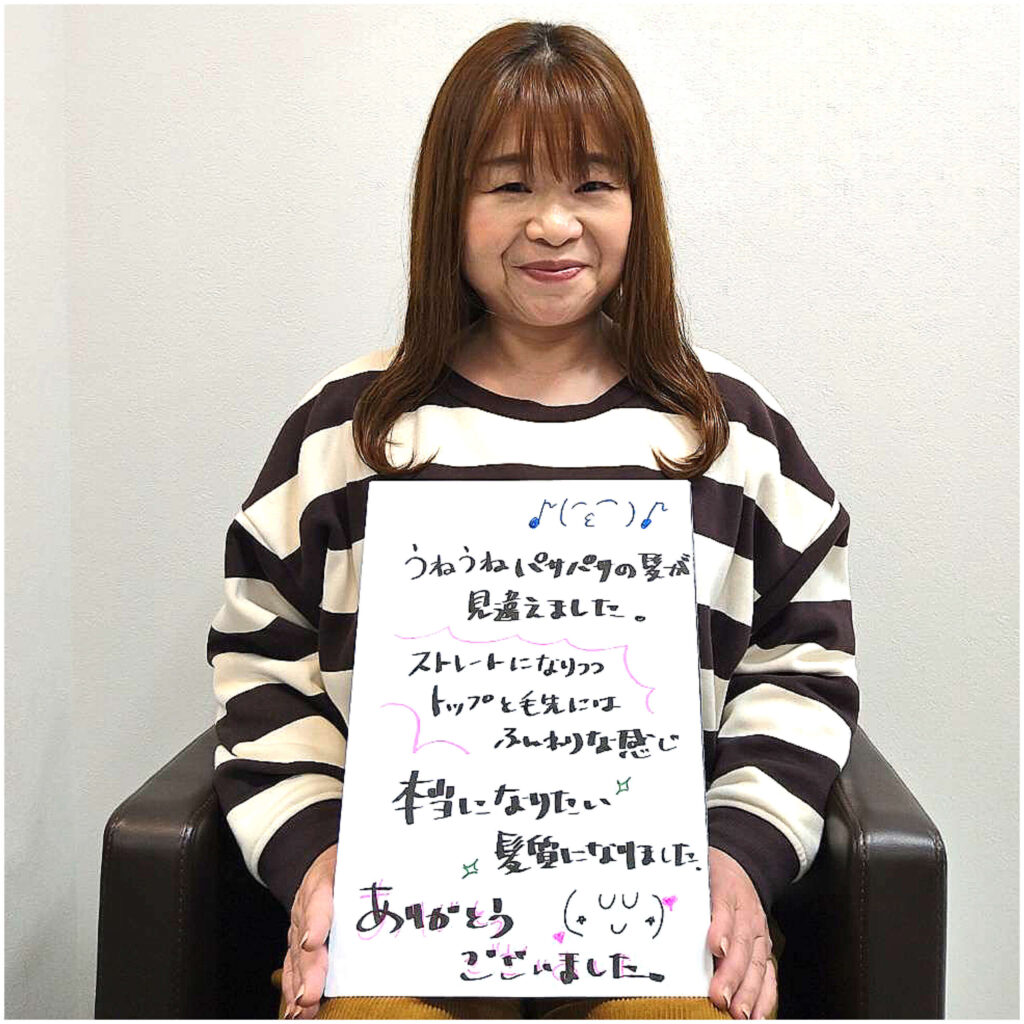 ♪(⌒ε⌒)♪
うねうねパサパサの髪が
見違えました。
ストレートになりつつ
トップと毛先には
ふんわりな感じ
本当になりたい
髪質になりました。
ありがとう
ございました。